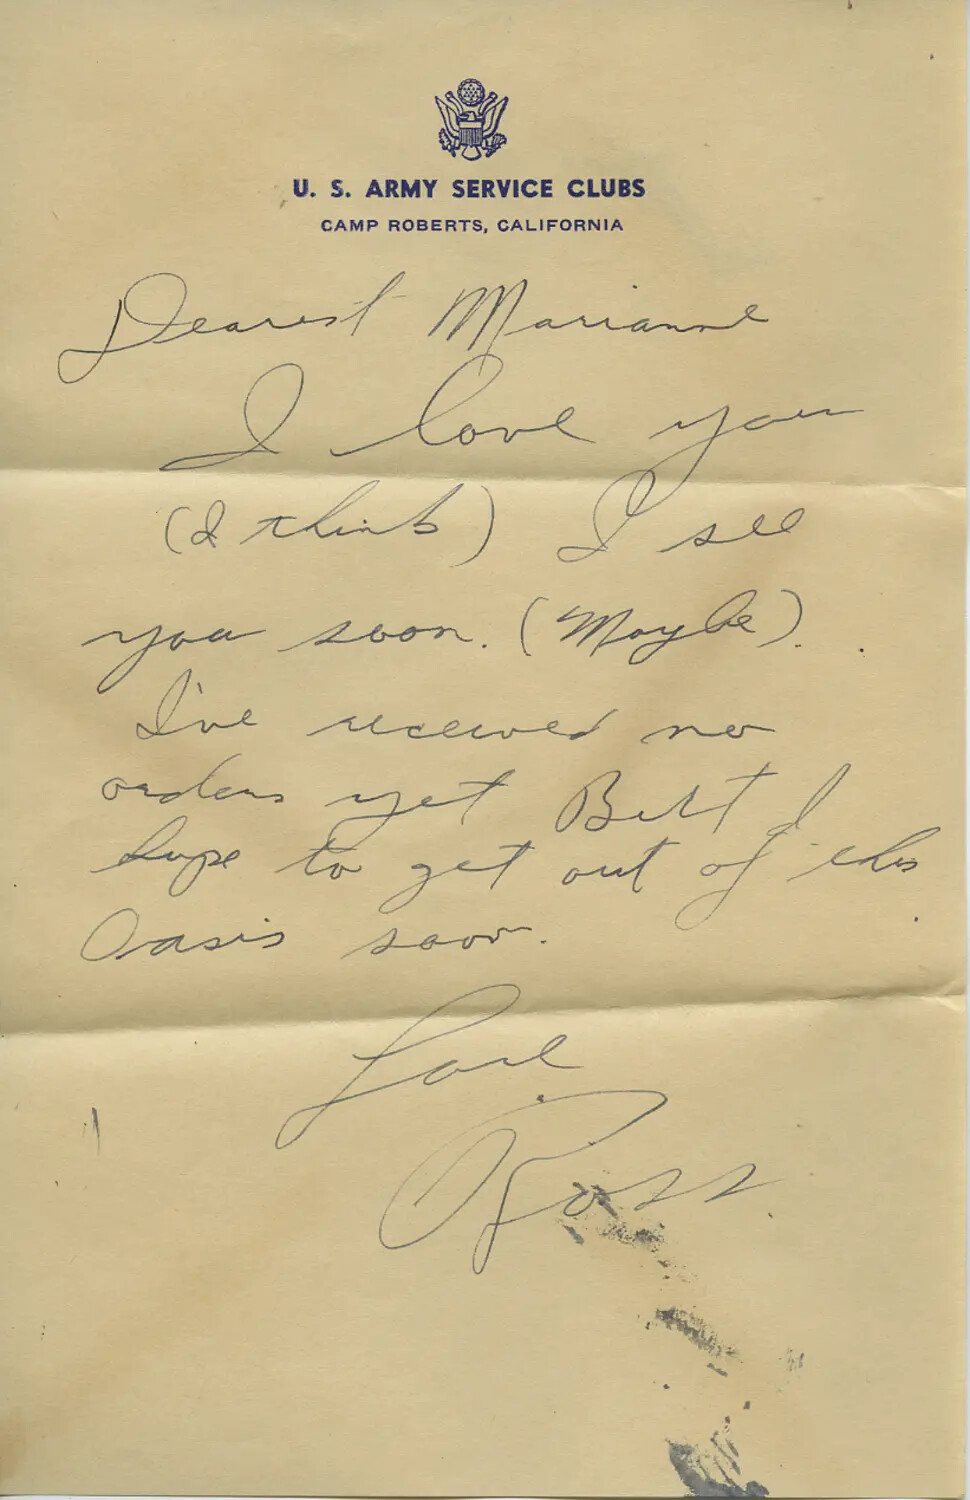 U. S. ARMY SERVICE CLUBS
CAMP ROBERTS, CALIFORNIA
Dearest Marianne
I love you
(I think) I see
you soon. (Maybe).
I've received no
orders yet But I
hope to get out of this
Oasis soon.
Love
Ross